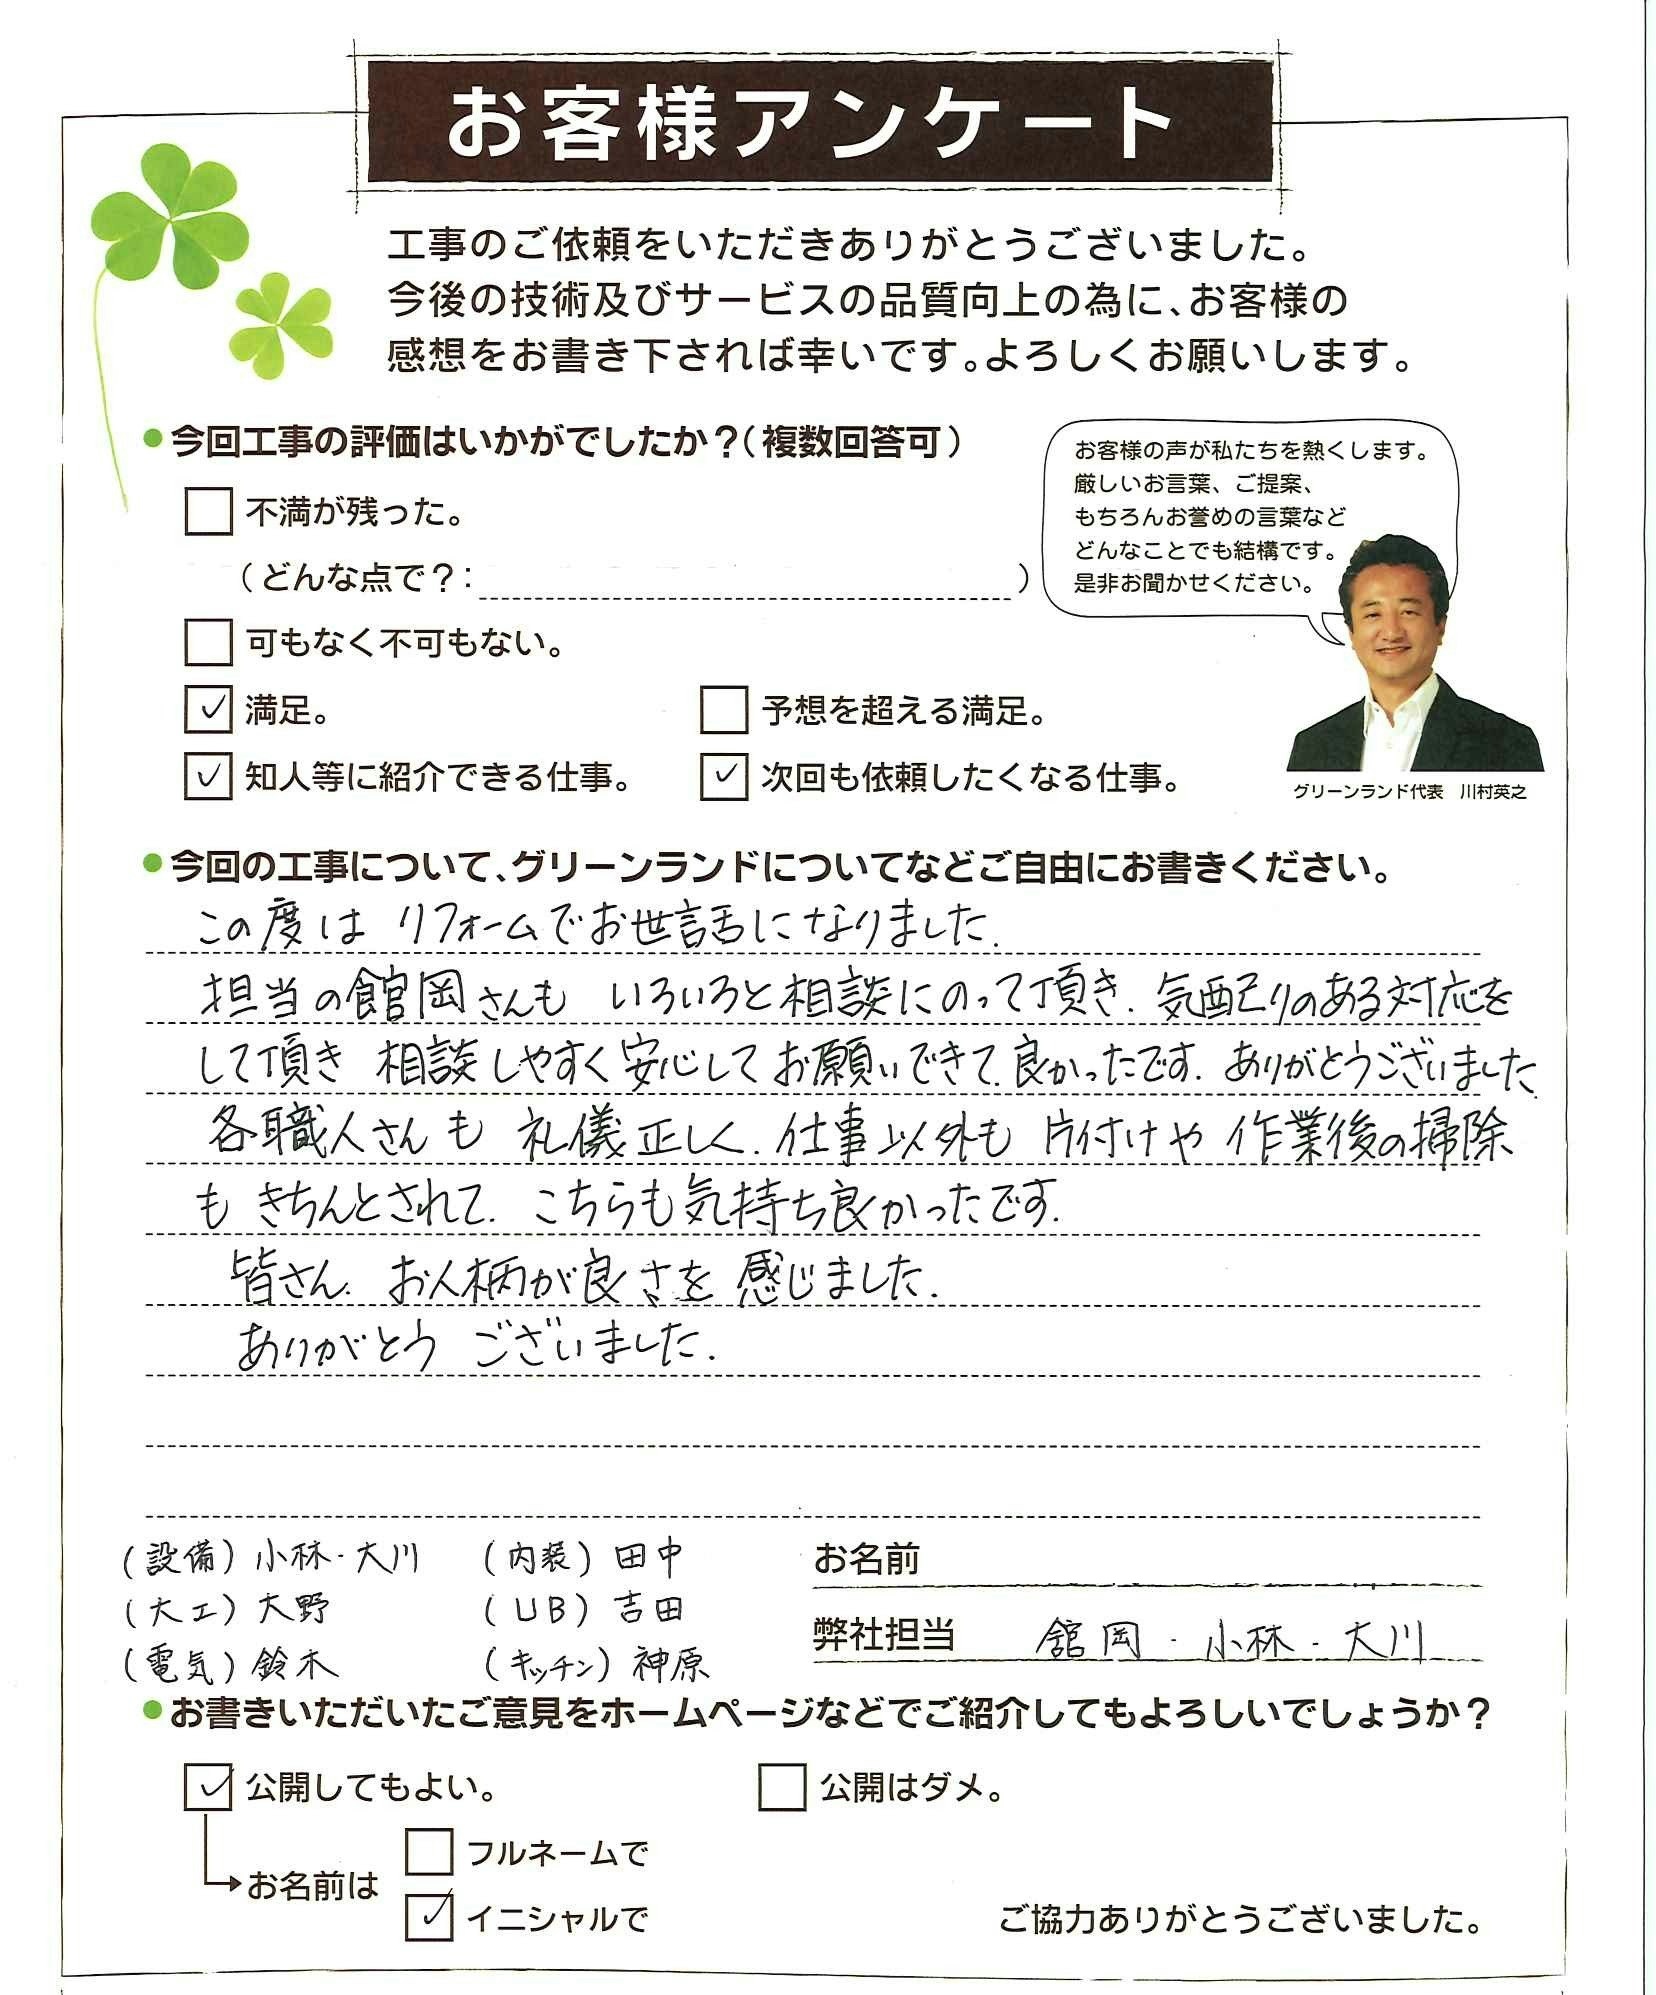 お客様アンケート
工事のご依頼をいただきありがとうございました。
今後の技術及びサービスの品質向上の為に、お客様の
感想をお書き下されば幸いです。よろしくお願いします。
今回工事の評価はいかがでしたか？（複数回答可）
不満が残った。
（どんな点で？： ）
可もなく不可もない。
満足。 予想を超える満足。
知人等に紹介できる仕事。 次回も依頼したくなる仕事。
お客様の声が私たちを熱くします。
厳しいお言葉、ご提案、
もちろんお誉めの言葉など
どんなことでも結構です。
是非お聞かせください。
グリーンランド代表　川村英之
今回の工事について、グリーンランドについてなどご自由にお書きください。
この度は リフォームでお世話になりました.
担当の館岡さんも いろいろと相談にのって頂き. 気配りのある対応を
して頂き 相談しやすく安心してお願いできて. 良かったです. ありがとうございました.
各職人さんも 礼儀正しく. 仕事以外も 片付けや 作業後の掃除
も きちんとされて. こちらも気持ち良かったです.
皆さん. お人柄が良さを 感じました.
ありがとう ございました.
(設備) 小林・大川 (内装) 田中
(大工) 大野 (UB) 吉田
(電気) 鈴木 (キッチン) 神原
お名前
弊社担当 舘岡・小林・大川
お書きいただいたご意見をホームページなどでご紹介してもよろしいでしょうか？
公開してもよい。 公開はダメ。
お名前は フルネームで
イニシャルで
ご協力ありがとうございました。